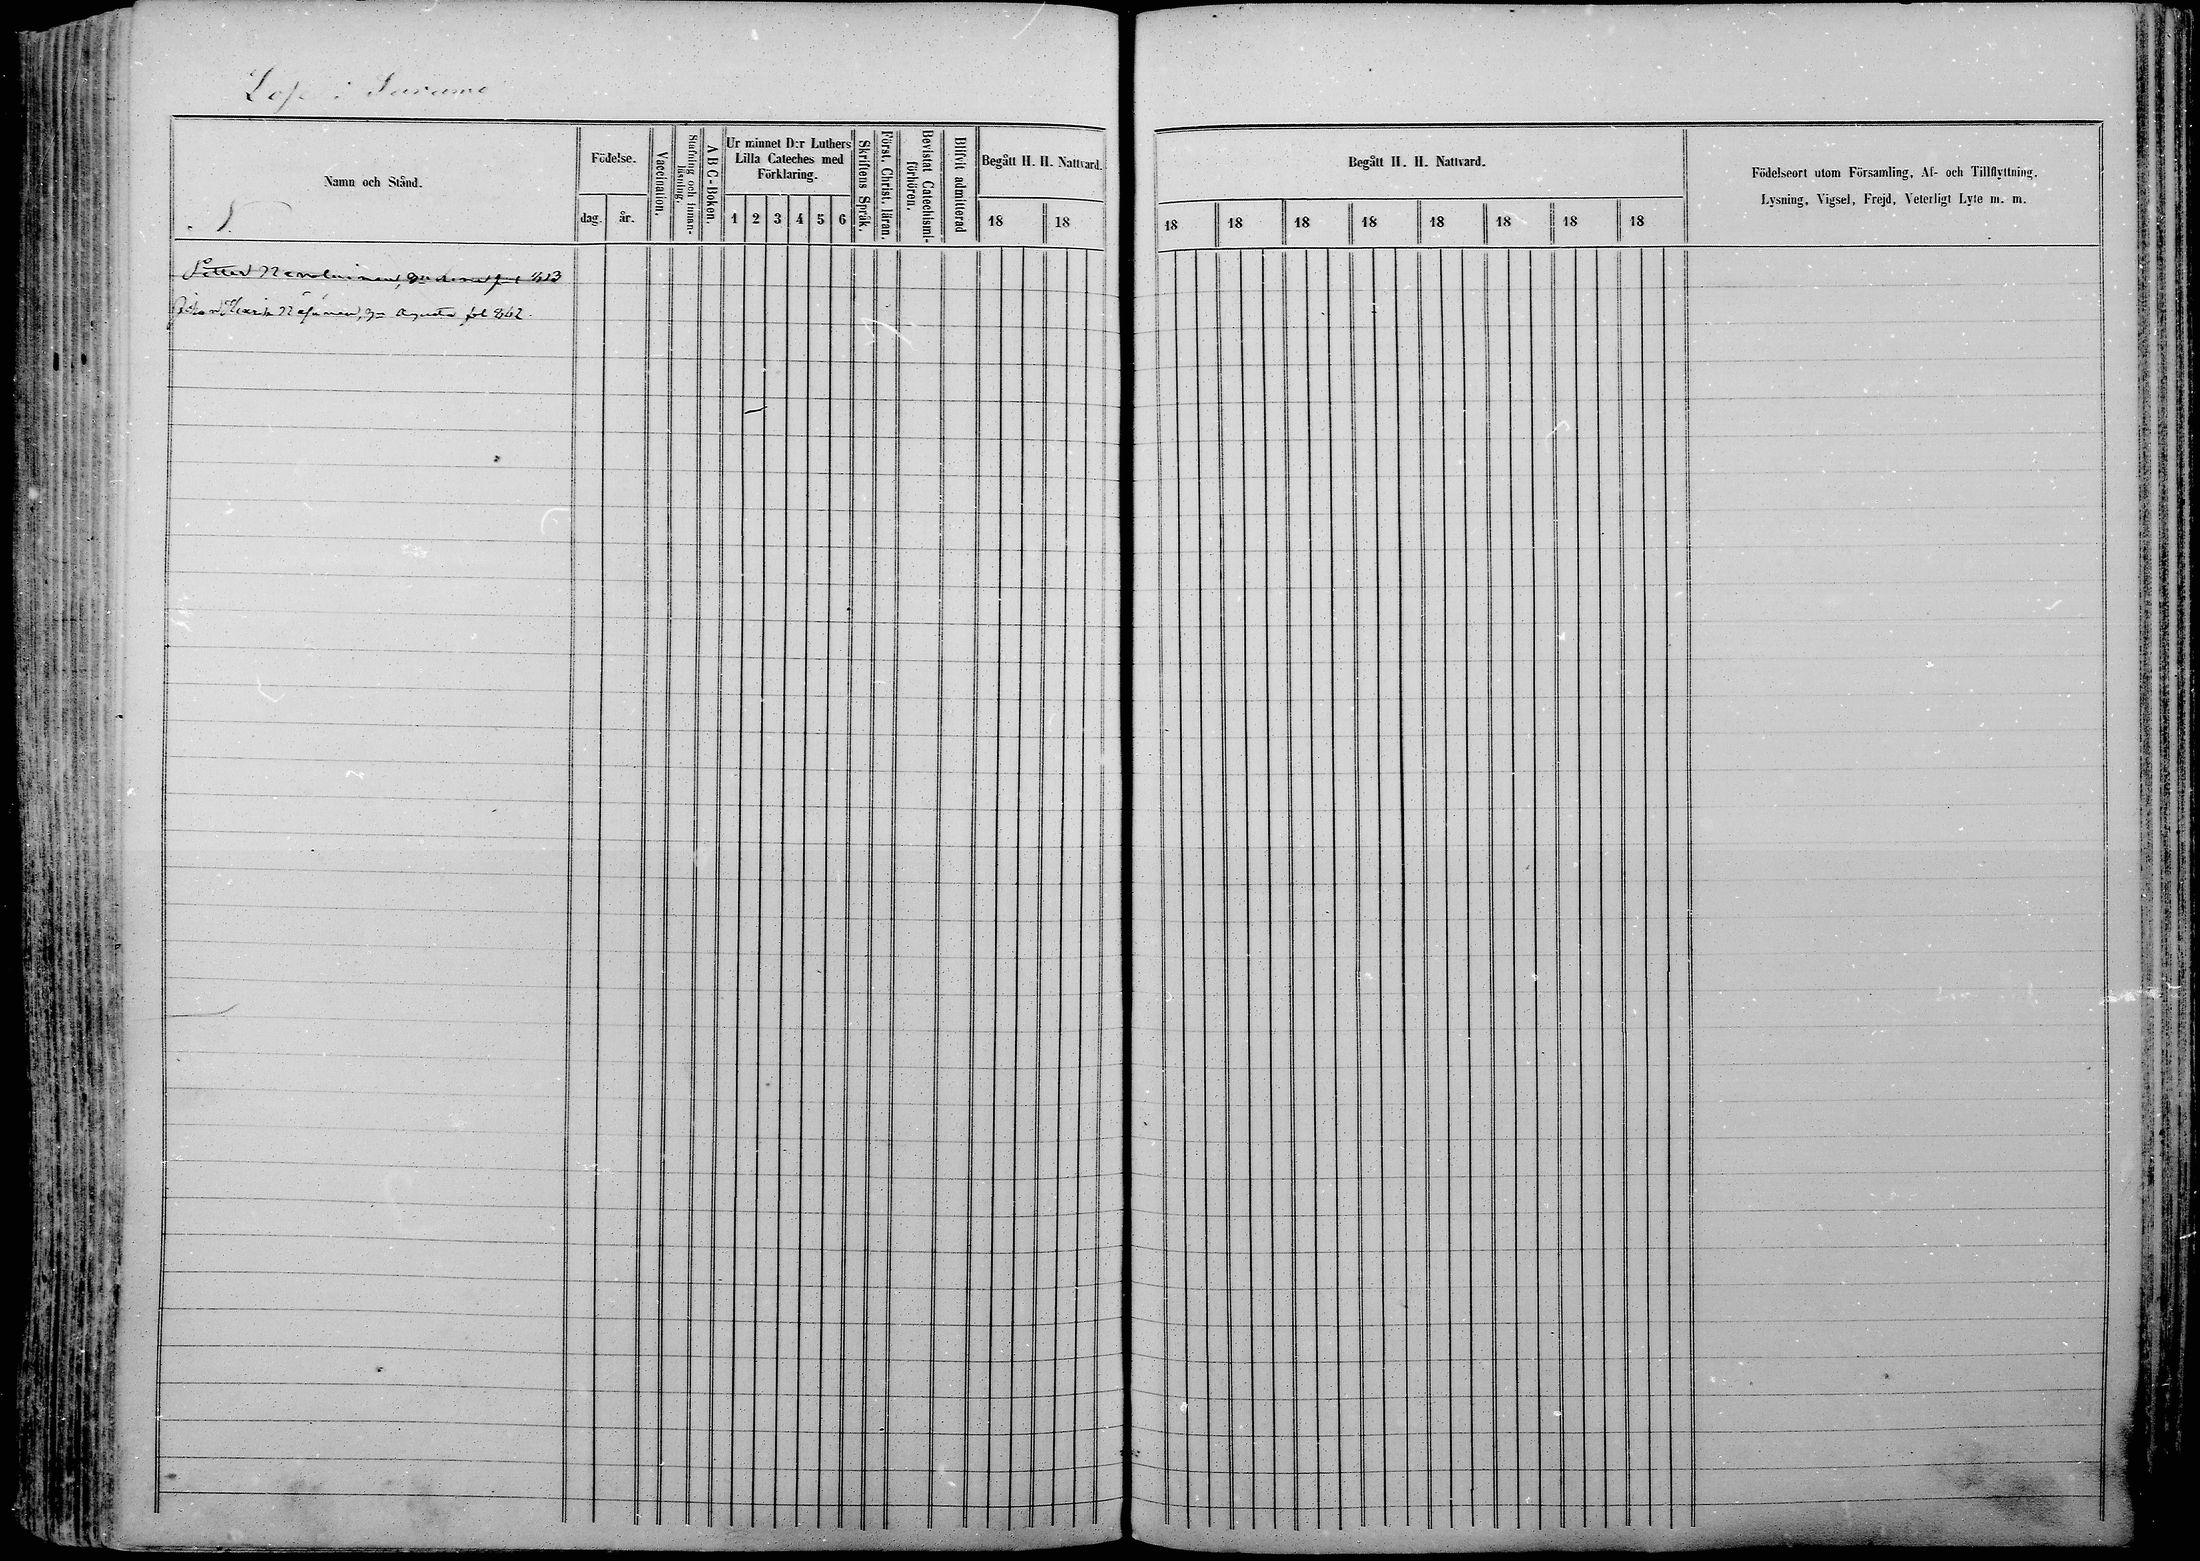 Lose i Surumo
Namn och Stånd.
N.
Födelse.
dag. år.
Vaccination.
Stafning och innan-läsning.
ABC-Boken.
Ur minnet D:r Luthers
Lilla Cateches med
Förklaring.
1 2 3 4 5 6
Skriftens Språk.
Först. Christ. läran.
Bevistat Catechismi-förhören.
Blifvit admitterad
Begått H. H. Nattvard.
18 18
Begått H. H. Nattvard.
18 18 18 18 18 18 18 18
Födelseort utom Församling, Af- och Tillflyttning.
Lysning, Vigsel, Frejd, Veterligt Lyte m. m.
Petter
fol 862.